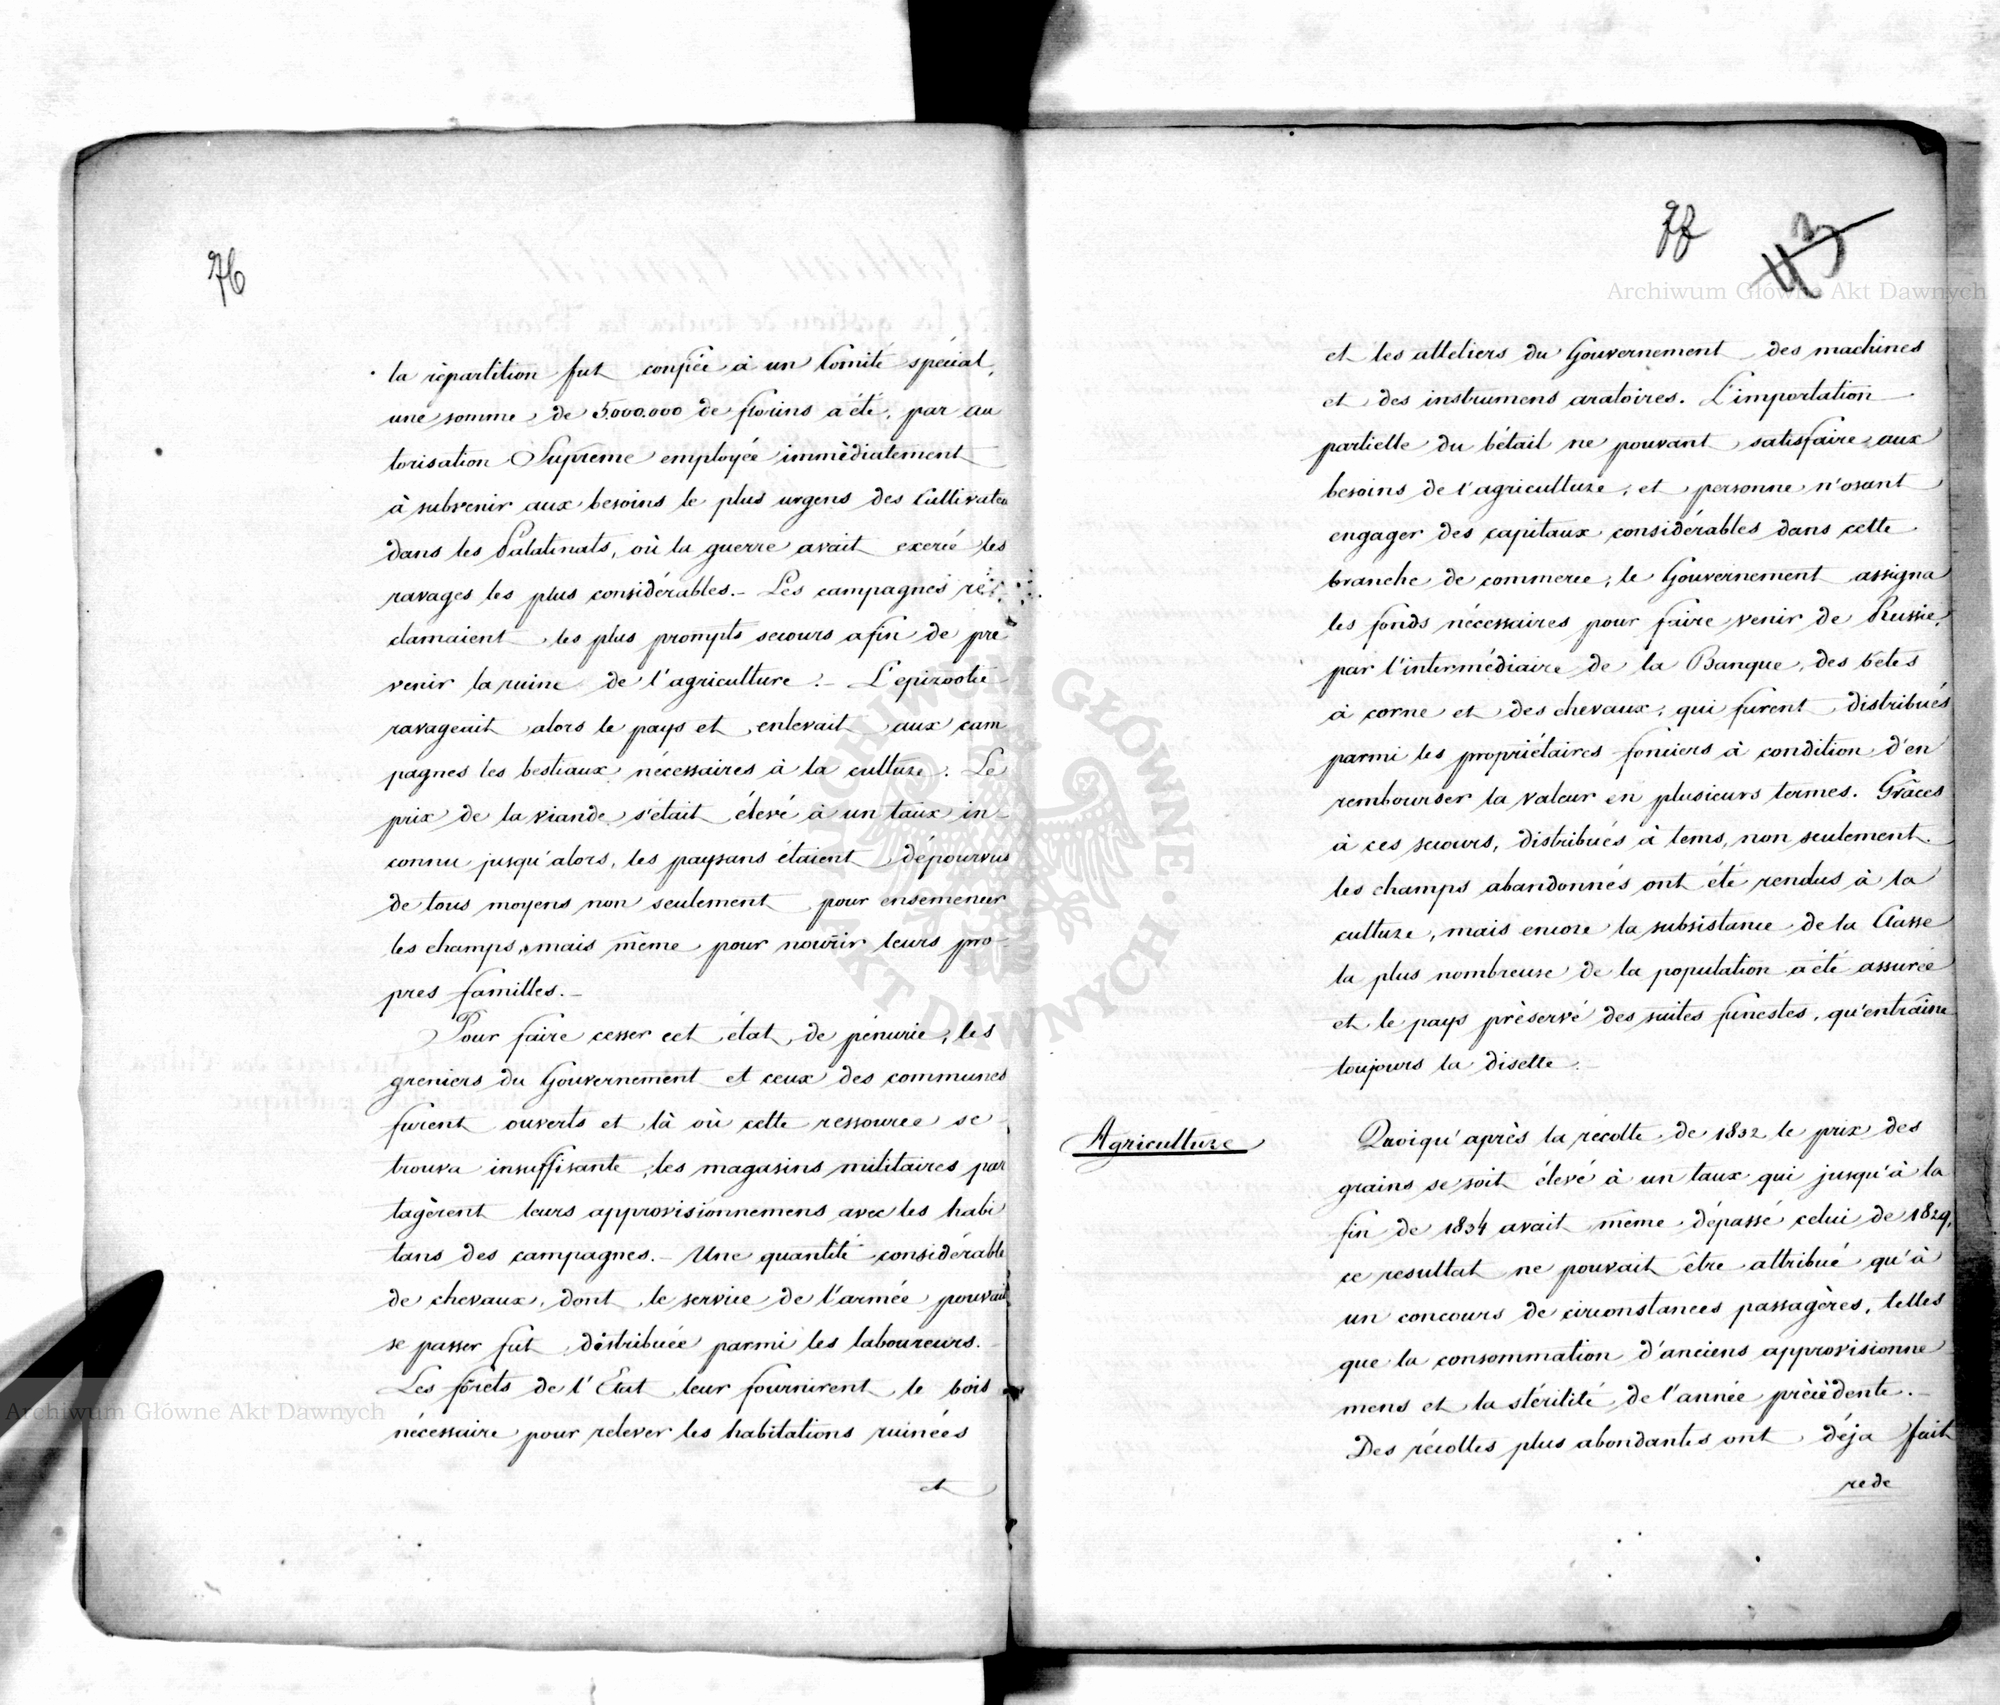 76
la répartition fut confiée à un Comité spécial,
une somme de 5.000.000 de florins a été, par au
torisation Suprême employée immédiatement
à subvenir aux besoins le plus urgens des Cultivateu
dans les Palatinats, où la guerre avait exercé les
ravages les plus considérables.- Les campagnes ré
clamaient les plus prompts secours afin de pré
venir la ruine de l'agriculture.- L'epizootie
ravageait alors le pays et enlevait aux cam
pagnes les bestiaux nécessaires à la culture. Le
prix de la viande s'était élevé à un taux in-
connu jusqu'alors, les paysans étaient dépourvus
de tous moyens non seulement pour ensemencer
les champs, mais même pour nourrir leurs pro-
pres familles.-
Pour faire cesser cet état de pénurie, les
greniers du Gouvernement et ceux des communes
furent ouverts et là où cette ressource se
trouva insuffisante, les magasins militaires par
tagèrent leurs approvisionnemens avec les habi
tans des campagnes.- Une quantité considérable
de chevaux, dont le service de l'armée pouvait
se passer fut distribuée parmi les laboureurs.
Les fôrets de l'Etat leur fournirent le bois
nécessaire pour relever les habitations ruinées
et
77
43
et les atteliers du Gouvernement des machines
et des instrumens aratoires. L'importation
partielle du bétail ne pouvant satisfaire aux
besoins de l'agriculture, et personne n'osant
engager des capitaux considérables dans cette
branche de commerce, le Gouvernement assigna
les fonds nécessaires pour faire venir de Russie,
par l'intermédiaire de la Banque, des bêtes
à corne et des chevaux, qui furent distribués
parmi les propriétaires fonciers à condition d'en
rembourser la valeur en plusieurs termes. Grâces
à ces secours, distribués à tems, non seulement
les champs abandonnés ont été rendus à la
culture, mais encore la subsistance de la Classe
la plus nombreuse de la population a été assurée
et le pays préservé des suites funestes, qu'entraine
toujours la disette.
Agriculture
Quoiqu'après la récolte de 1832 le prix des
grains se soit élevé à un taux qui jusqu'à la
fin de 1834 avait même dépassé celui de 1829,
ce resultat ne pouvait être attribué qu'à
un concours de circonstances passagères, telles
que la consommation d'anciens approvisionne
mens et la stérilité de l'année précédente.-
Des récoltes plus abondantes ont déja fait
rede
Archiwum Główne Akt Dawnych
Archiwum Główne Akt Dawnych
ARCHIWUM GŁÓWNE · AKT DAWNYCH ·